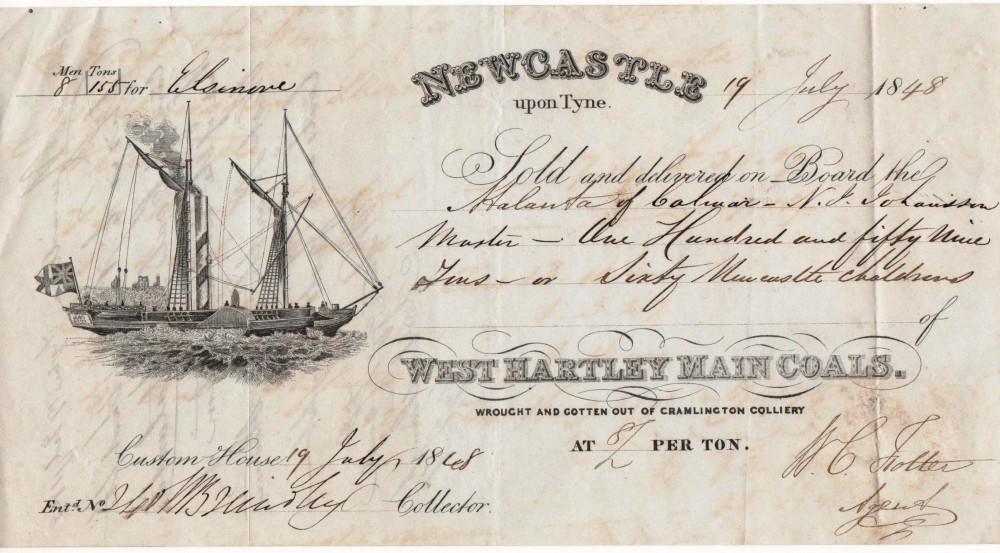 Men Tons
8 155 for Elsinore
NEWCASTLE
upon Tyne.
19 July 1848
Sold and delivered on Board the
Atalanta of Calmar - N. P. Johansson
Master - One Hundred and fifty Nine
Tons - or Sixty Newcastle Chaldrons
of
WEST HARTLEY MAIN COALS.
WROUGHT AND GOTTEN OUT OF CRAMLINGTON COLLIERY
AT 8/ PER TON.
Custom House 19 July 1848
Ent.d No.
Collector.
W. C.
Agent